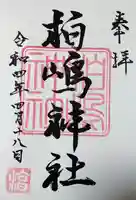 奉拝
柏嶋神社
令和四年四月十八日